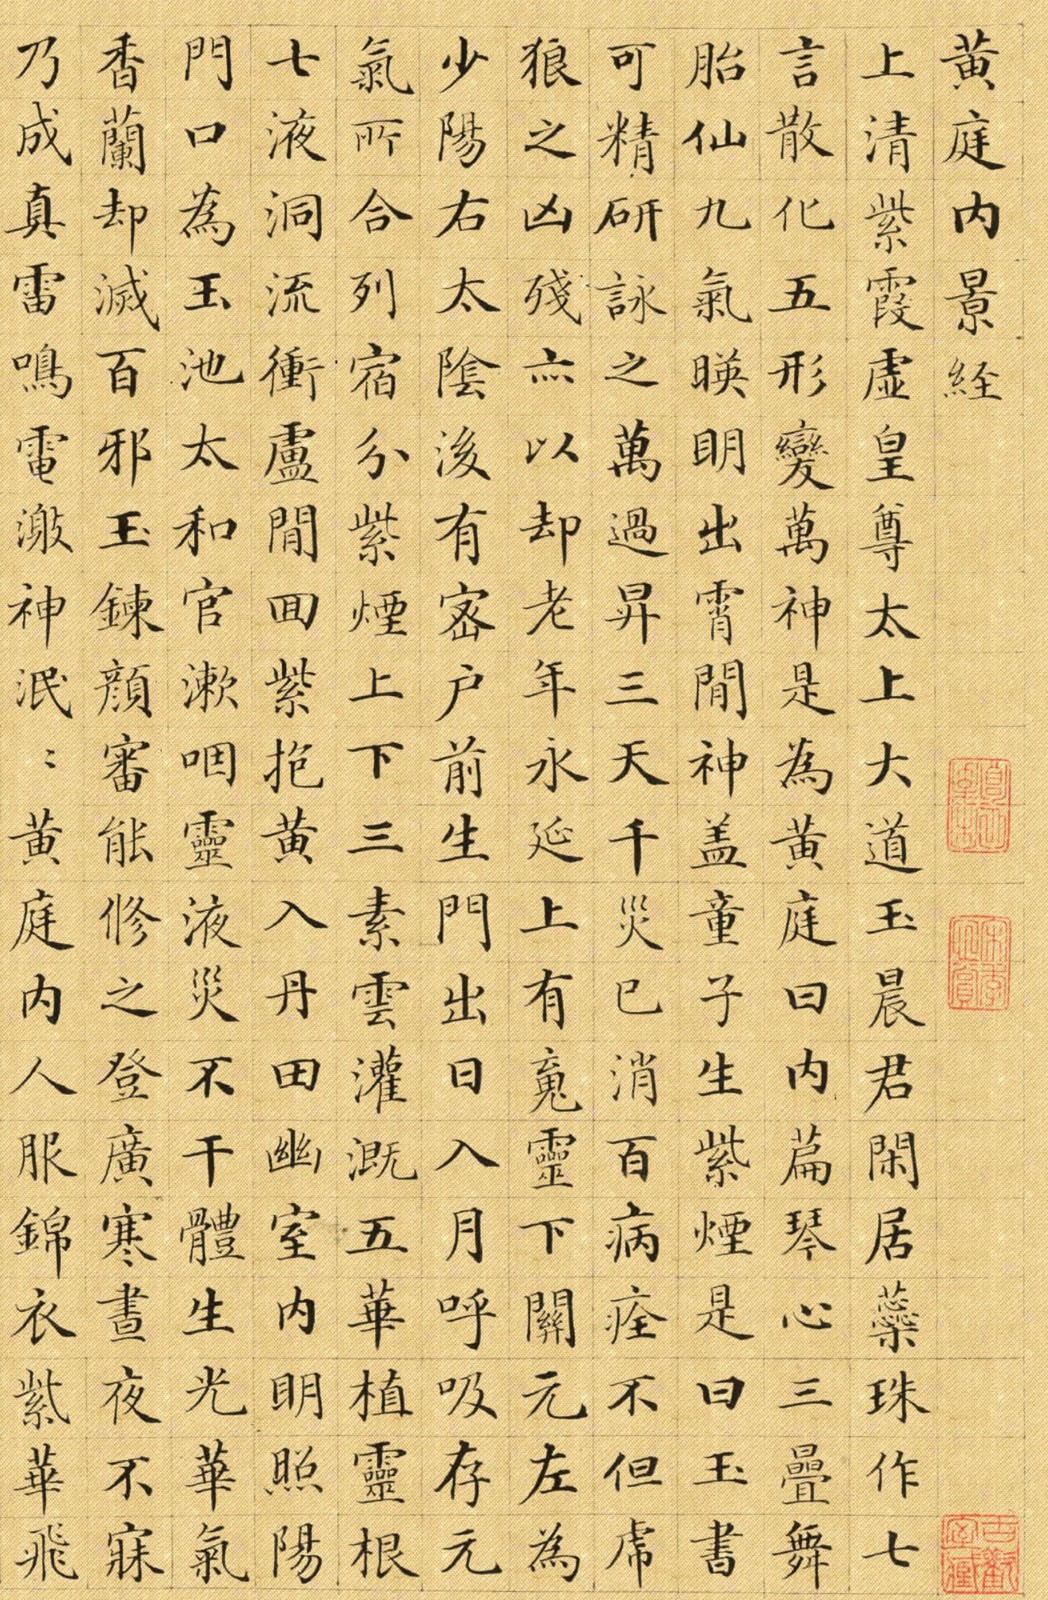 黄庭内景経
上清紫霞虚皇尊太上大道玉晨君閑居蘂珠作七
言散化五形變萬神是為黄庭曰内篇琴心三疊舞
胎仙九氣暎明出霄間神盖童子生紫煙是曰玉書
可精研詠之萬過昇三天千災已消百病痊不但虎
狼之凶殘亦以却老年永延上有䰟靈下關元左為
少陽右太陰後有密户前生門出日入月呼吸存元
氣所合列宿分紫煙上下三素雲灌溉五華植靈根
七液洞流衝盧間回紫抱黄入丹田幽室内明照陽
門口為玉池太和官漱咽靈液災不干體生光華氣
香蘭却滅百邪玉鍊顔審能修之登廣寒晝夜不寐
乃成真雷鳴電激神泯〻黄庭内人服錦衣紫華飛